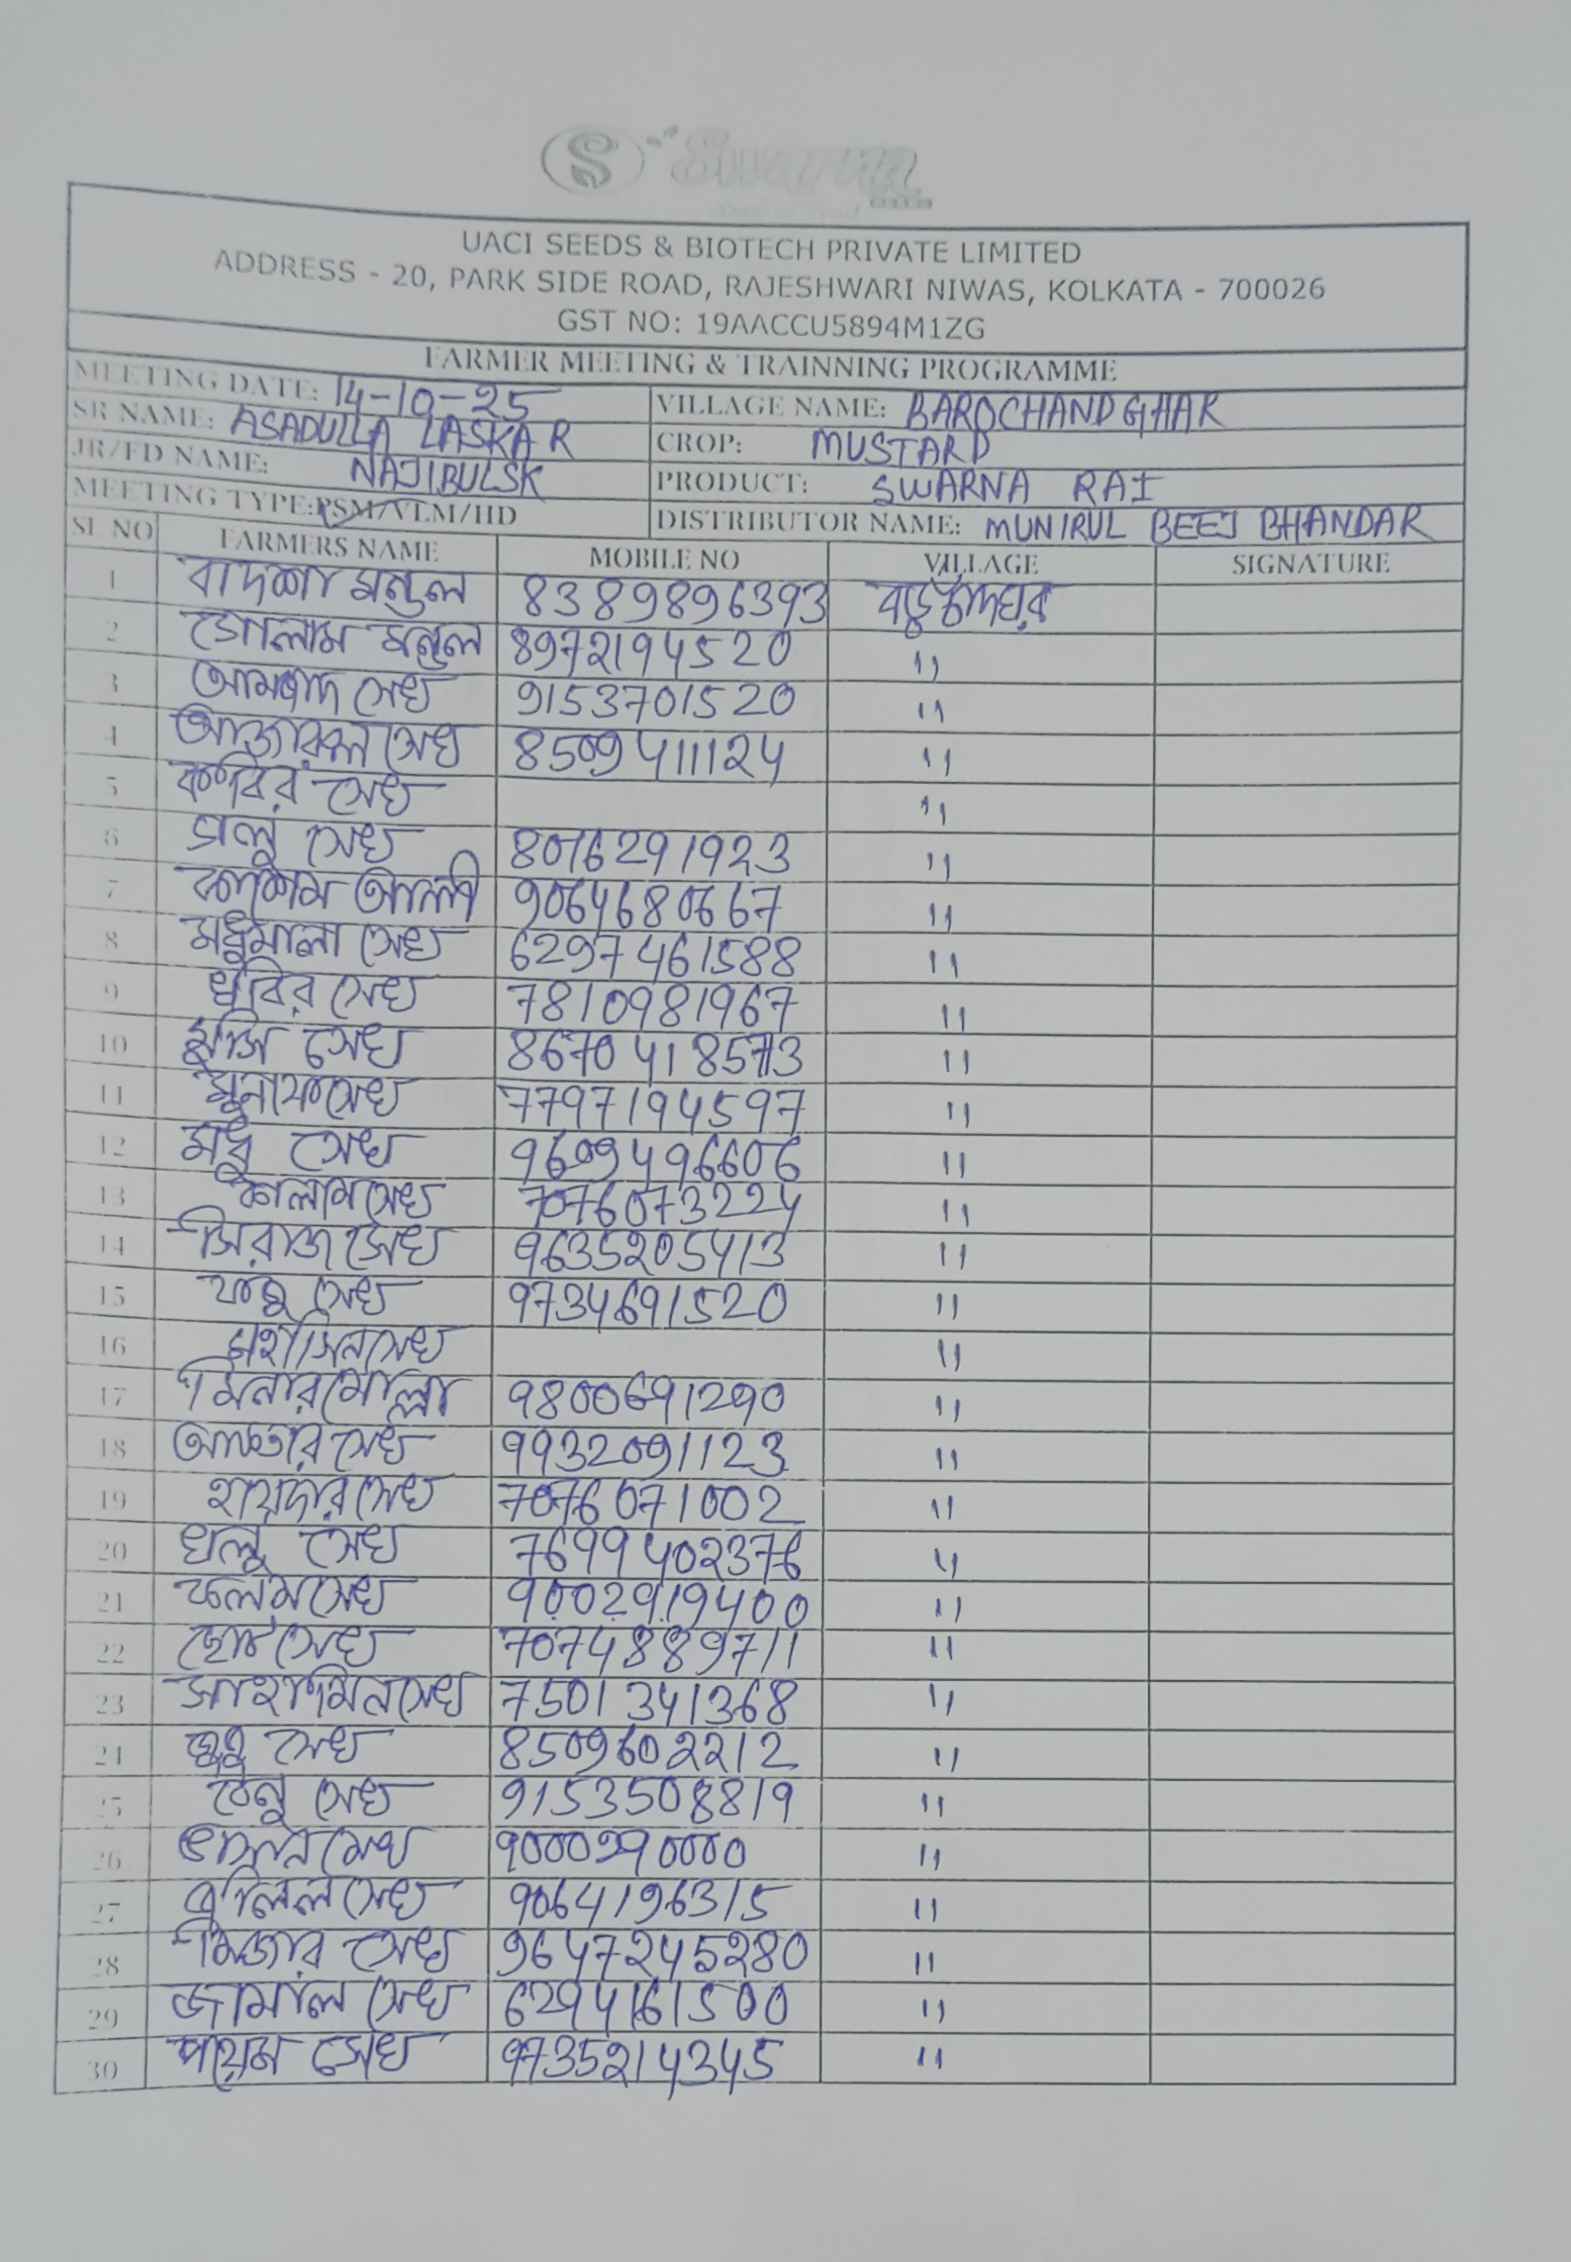 S Swarna
UACI SEEDS & BIOTECH PRIVATE LIMITED
ADDRESS - 20, PARK SIDE ROAD, RAJESHWARI NIWAS, KOLKATA - 700026
GST NO: 19AACCU5894M1ZG
FARMER MEETING & TRAINNING PROGRAMME
MEETING DATE: 14-10-25 VILLAGE NAME: BAROCHANDGHAR
SR NAME: ASADULLA LASKAR CROP: MUSTARD
JR/FD NAME: NAJIBULSK PRODUCT: SWARNA RAI
MEETING TYPE: PSM/VLM/IID DISTRIBUTOR NAME: MUNIRUL BEEJ BHANDAR
SL NO FARMERS NAME MOBILE NO VILLAGE SIGNATURE
1 বাদশা মন্ডল 8389896393 বড়চাঁদঘর
2 গোলাম মন্ডল 8972194520 "
3 আমজাদ সেখ 9153701520 "
4 সেখ 8509411124 "
5 কাবির সেখ "
6 সেখ 8016291923 "
7 কাশেম আলী 9064680667 "
8 মধুমালা সেখ 6297461588 "
9 সেখ 7810981967 "
10 সেখ 8670418573 "
11 সেখ 7797194597 "
12 মধু সেখ 9609496606 "
13 কালাম সেখ 7076073224 "
14 সিরাজ সেখ 9635205413 "
15 সেখ 9734691520 "
16 সেখ "
17 মিনার মোল্লা 9800691290 "
18 সেখ 9932091123 "
19 হায়দার সেখ 7076071002 "
20 সেখ 7699402376 "
21 সেখ 9002919400 "
22 ছোট সেখ 7074889711 "
23 সেখ 7501341368 "
24 সেখ 8509602212 "
25 সেখ 9153508819 "
26 সেখ 9000290000 "
27 সেখ 9064196315 "
28 মিজার সেখ 9647245280 "
29 জামাল সেখ 6294161500 "
30 সেখ 9735214345 "